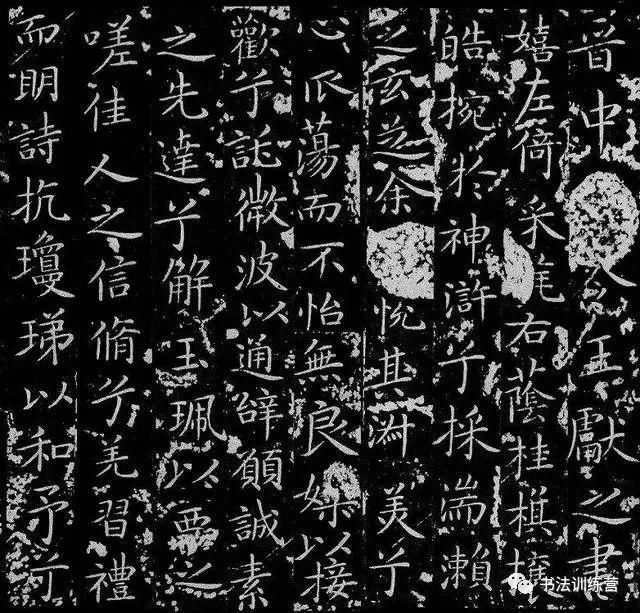 晋中令王獻之書
嬉左倚采旄右蔭桂棋攘
皓捥於神滸兮採湍瀨
之玄芝余悅其淑美兮
心振蕩而不怡無良媒以接
歡兮託微波以通辭願誠素
之先達兮解玉珮以要之
嗟佳人之信脩兮羌習禮
而明詩抗瓊珶以和予兮
书法训练营